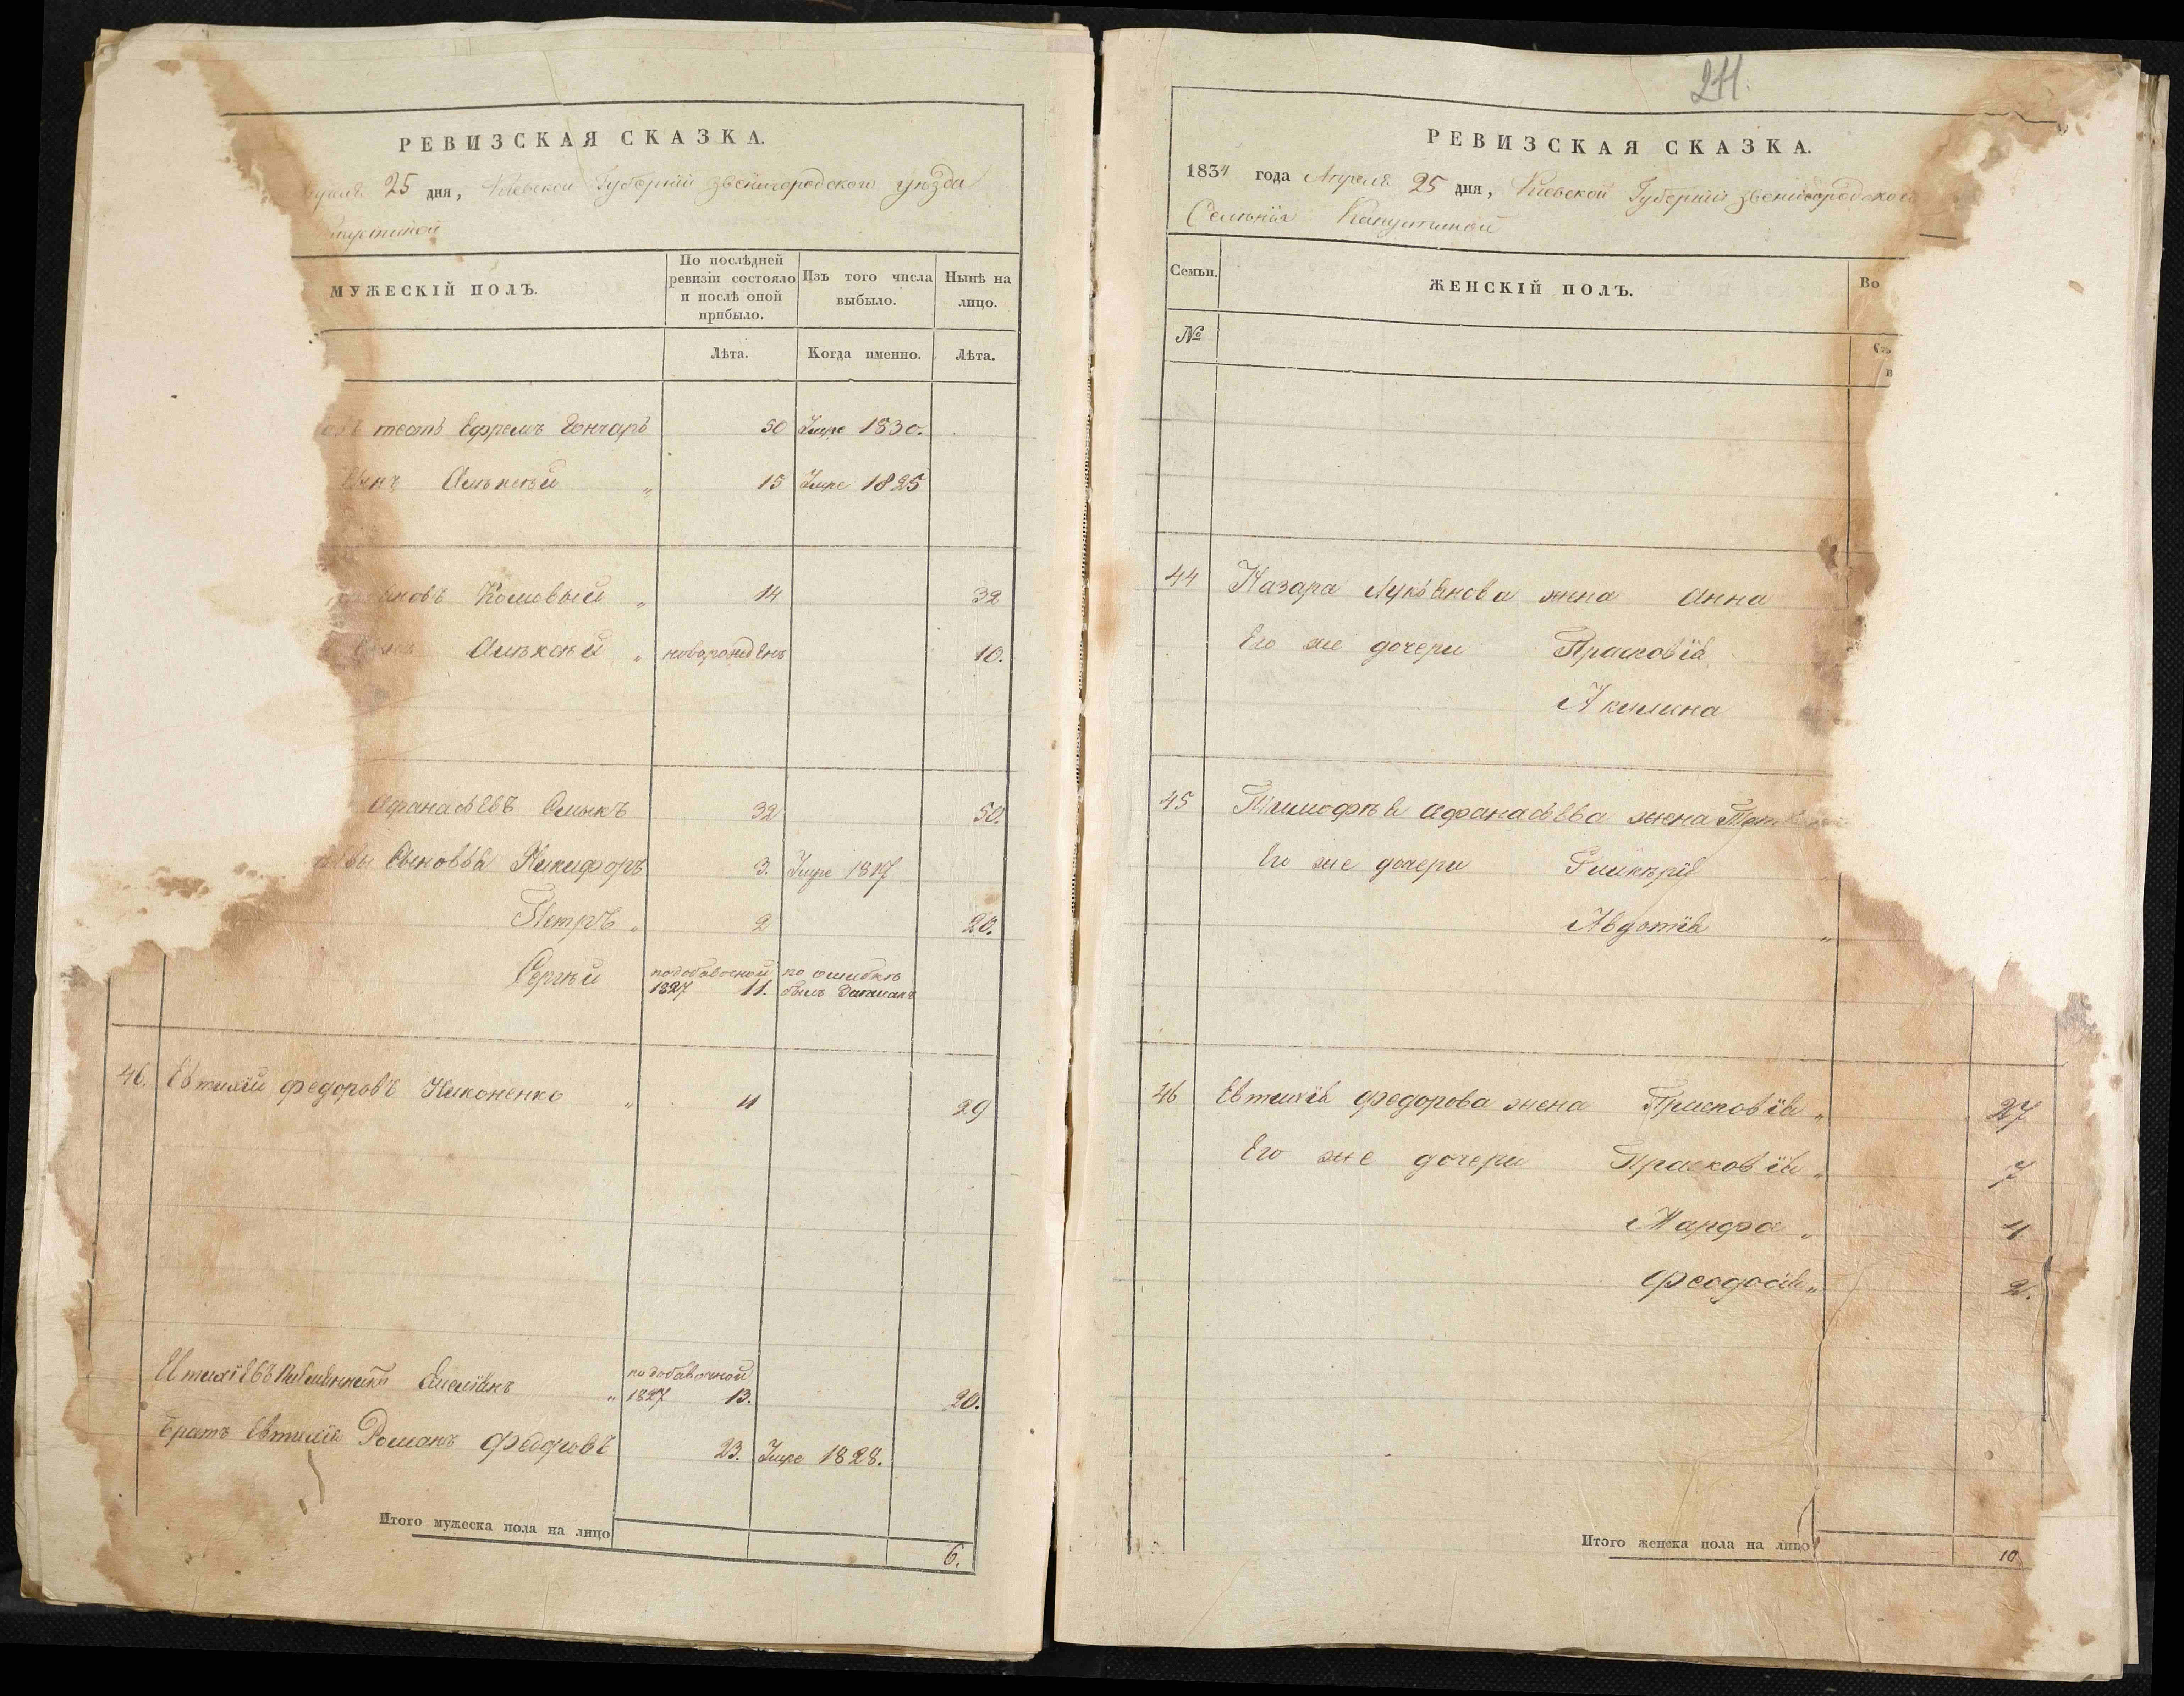 РЕВИЗСКАЯ СКАЗКА.
25 дня, Киевской Губерніи Звенигородского уѣзда
МУЖЕСКІЙ ПОЛЪ.
По послѣдней ревизіи состояло и послѣ оной прибыло.
Изъ того числа выбыло.
Нынѣ на лицо.
Лѣта.
Когда именно.
Лѣта.
тесть Ефремъ Гончаръ 50 Умре 1830.
Сынъ Алѣксѣй „ 15 Умре 1825
Комовый „ 14 32
Алѣксѣй „ новорожденъ 10.
Афанасьевъ Смыкъ 32 50.
Сыновья Никифоръ 3. Умре 1817
Петръ „ 2 20.
Сергѣй подобавочной 1827 11. по ошибкѣ былъ записанъ
46. Евтихій Федоровъ Никоненко „ 11 29
Евтихіевъ племянникъ Емеліянъ „ подобавочной 1827 13. 20.
Братъ Евтихія Романъ Федоровъ 23. Умре 1828.
Итого мужеска пола на лицо 6.
211.
РЕВИЗСКАЯ СКАЗКА.
1834 года Апреля 25 дня, Киевской Губерніи Звенигородского
Селенія Капустиной
Семьи.
ЖЕНСКІЙ ПОЛЪ.
Во
№
44 Назара Лукьянова жена Анна
Его же дочери Прасковія
Акилина
45 Тимофѣя Афанасьева жена
Его же дочери Гликѣрія
Авдотія „
46 Евтихія Федорова жена Прасковія „ 27
Его же дочери Прасковія „ 7
Марфа „ 4
Феодосія „ 2.
Итого женска пола на лицо 10